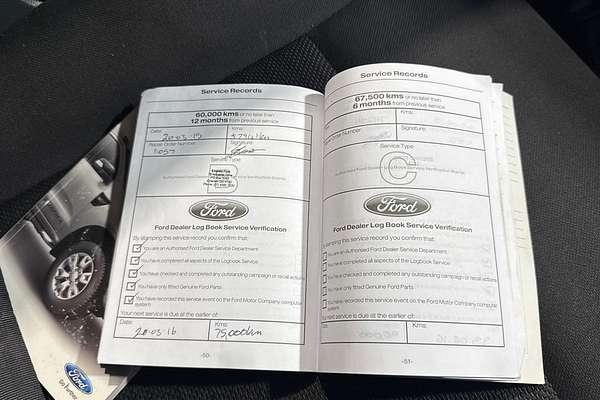 Service Records
60,000 kms or no later than
12 months from previous service
Date:
Kms:
20-03-15
Repair Order Number:
Signature:
Service Type
B
Authorised Ford Dealer
Ford
Ford Dealer Log Book Service Verification
By stamping this service record you confirm that:
You are an Authorised Ford Dealer Service Department
You have completed all aspects of the Logbook Service
You have checked and completed any outstanding campaign or recall actions
You have only fitted Genuine Ford Parts
You have recorded this service event on the Ford Motor Company computer
system
Your next service is due at the earlier of:
Date:
Kms:
20-03-16
75,000km
-50-
Service Records
67,500 kms or no later than
6 months from previous service
Kms:
Signature:
Service Type
C
Authorised Ford Dealer Log Book Service Verification Stamp
Ford
Ford Dealer Log Book Service Verification
By stamping this service record you confirm that:
You are an Authorised Ford Dealer Service Department
You have completed all aspects of the Logbook Service
You have checked and completed any outstanding campaign or recall actions
You have only fitted Genuine Ford Parts
You have recorded this service event on the Ford Motor Company computer
system
Your next service is due at the earlier of:
Date:
Kms:
-51-
Ford
Go Further